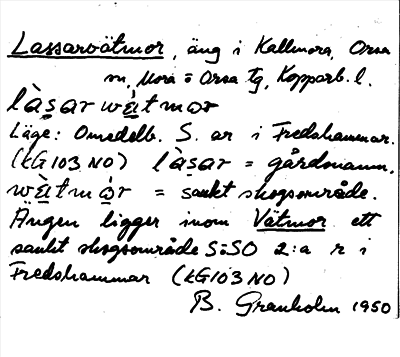 Lassarvätmor, äng i Kallmora, Orsa
sn, Mora o Orsa tg, Kopparb. l.
làsar wä̀tmọr
Läge: Omedelb. S. ar i Fredshammar.
(kG103 NO) làsar = gårdsnamn,
wä̀tmọ̀r = sankt skogsområde.
Ängen ligger inom Vätmor ett
sankt skogsområde S:SO 2:a r i
Fredshammar (kG103 NO)
B. Granholm 1950